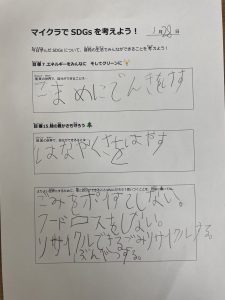 マイクラでSDGsを考えよう！
1月22日
今日学んだSDGsについて、普段の生活でみんなができることを考えよう！
目標7.エネルギーをみんなに そしてクリーンに
こまめにでんきをけす
目標15.緑の豊かさも守ろう
はなやくさをはやす
ごみをポイすてしない。
フードロスをしない。
リサイクルできるごみリサイクルする。
ぶんべつする。